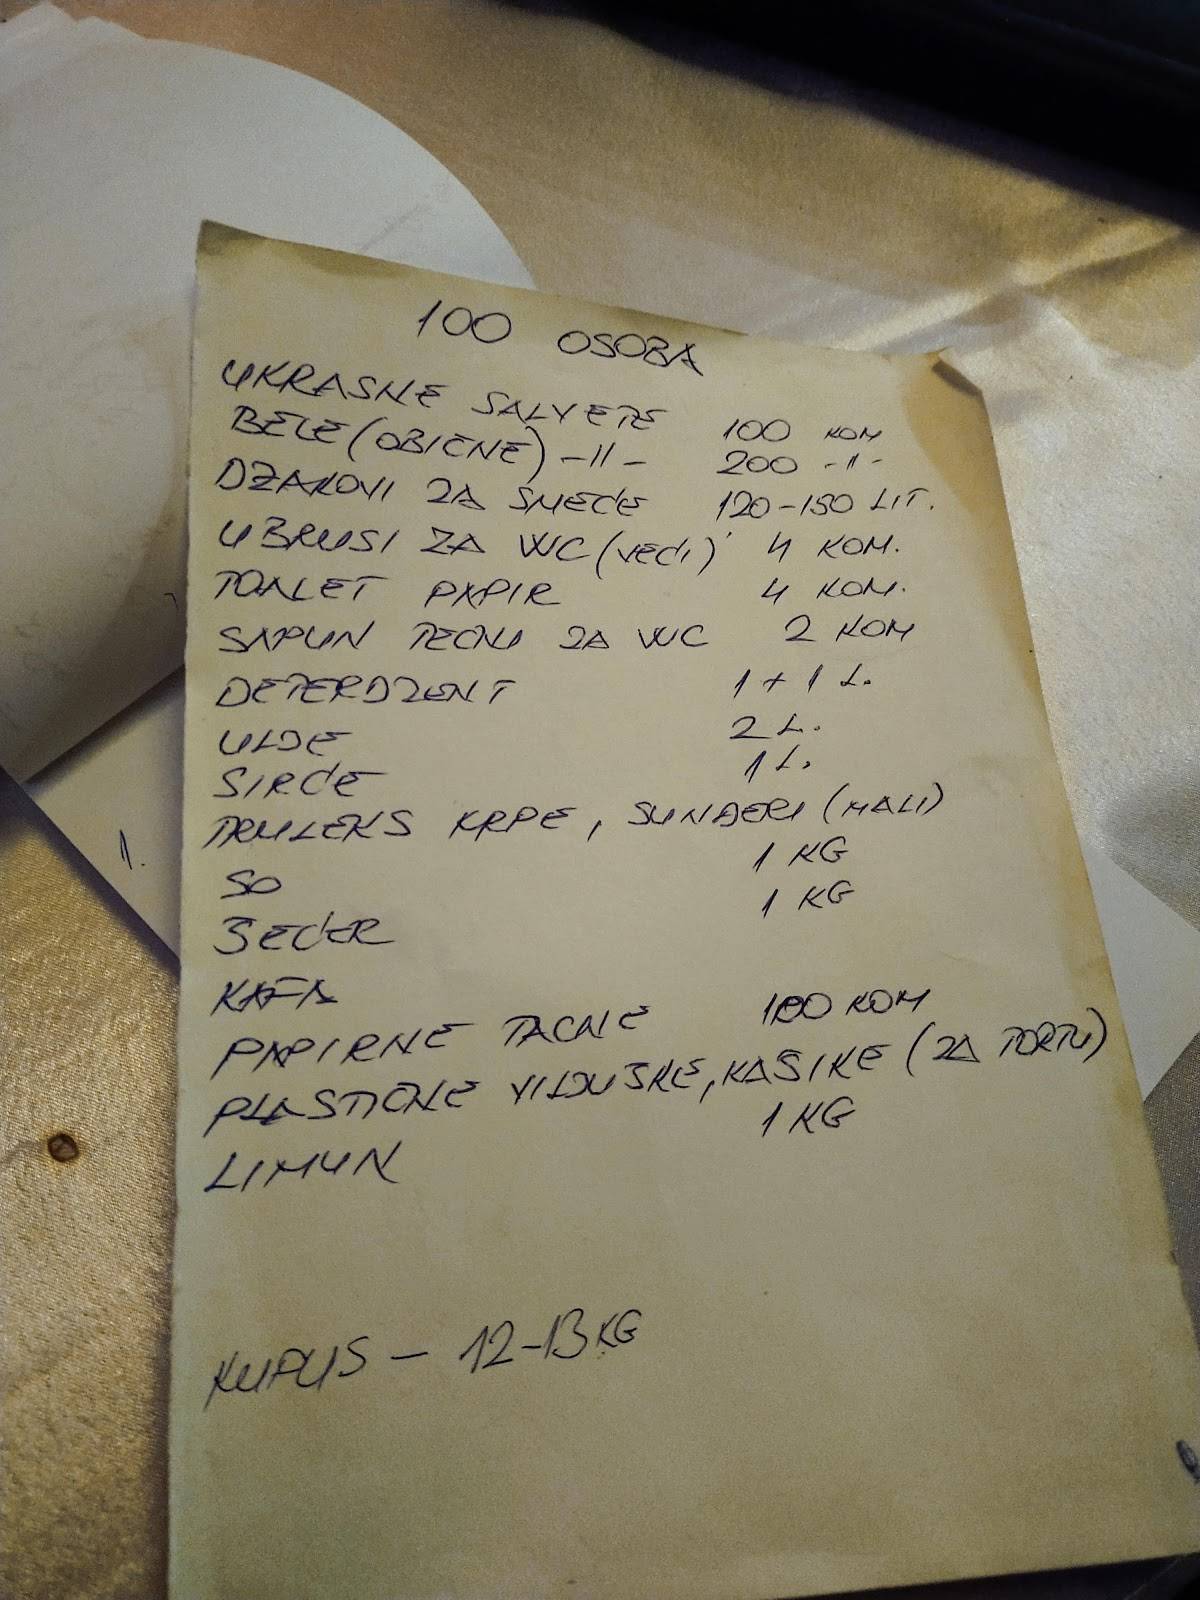 100 OSOBA
UKRASNE SALVETE 100 KOM
BELE (OBIČNE) -II- 200 -II-
DZAKOVI ZA SMEĆE 120-150 LIT.
UBRUSI ZA WC (VEĆI) 4 KOM.
TOALET PAPIR 4 KOM.
SAPUN TEČNI ZA WC 2 KOM
DETERDZENT 1+1 L.
ULJE 2 L.
SIRĆE 1 L.
TRULEKS KRPE, SUNĐERI (MALI)
SO 1 KG
ŠEĆER 1 KG
KAFA
PAPIRNE TACNE 100 KOM
PLASTIČNE VILJUŠKE, KAŠIKE (ZA TORTU)
LIMUN 1 KG
KUPUS - 12-13 KG
1.